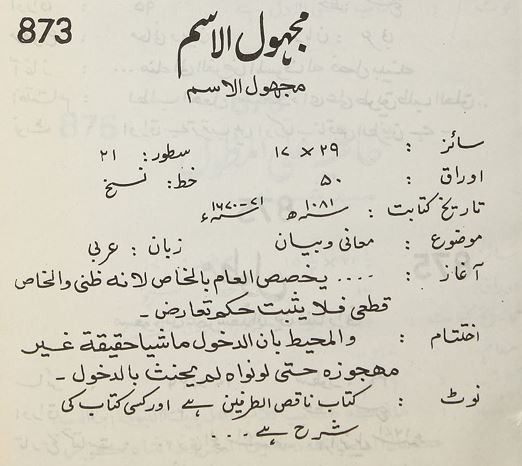 873
مجہول الاسم
مجهول الاسم
سائز : ۲۹ × ۱۷ سطور: ۲۱
اوراق : ۵۰ خط: نسخ
تاریخ کتابت : ۱۰۸۱ سنہ ھ ۷۱-۱۶۷۰ سنہ ء
موضوع : معانی و بیان زبان : عربی
آغاز : .... يخصص العام بالخاص لانه ظنى والخاص
قطعى فلا يثبت حكم تعارض -
اختتام : والمحيط بان الدخول ماشيا حقيقة غير
مهجوزه حتى لو نواه لم يحنث بالدخول -
نوٹ : کتاب ناقص الطرفین ہے اور کسی کتاب کی
شرح ہے ...